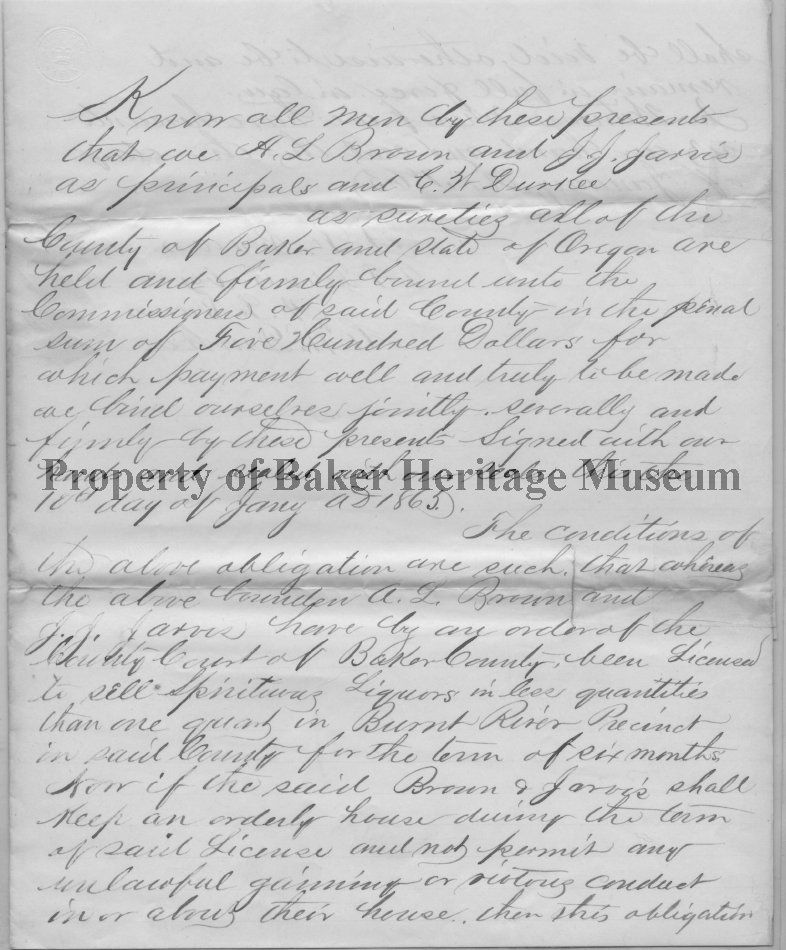 Know all men by these presents
that we A. L. Brown and J. J. Jarvis
as principals and C. W Durkee
as sureties all of the
County of Baker and state of Oregon are
held and firmly bound unto the
Commissioners of said County in the penal
sum of Five Hundred Dollars for
which payment well and truly to be made
we bind ourselves jointly severally and
firmly by these presents Signed with our
Property of Baker Heritage Museum
10th day of Jany AD 1865.
The conditions of
the above obligation are such, that whereas
the above bounden A. L. Brown and
J. J. Jarvis have by an order of the
County Court of Baker County, been Licensed
to sell Spirituous Liquors in less quantities
than one quart in Burnt River Precinct
in said County for the term of six months
Now if the said Brown & Jarvis shall
Keep an orderly house during the term
of said License and not permit any
unlawful gaming or riotous conduct
in or about their house, then this obligation